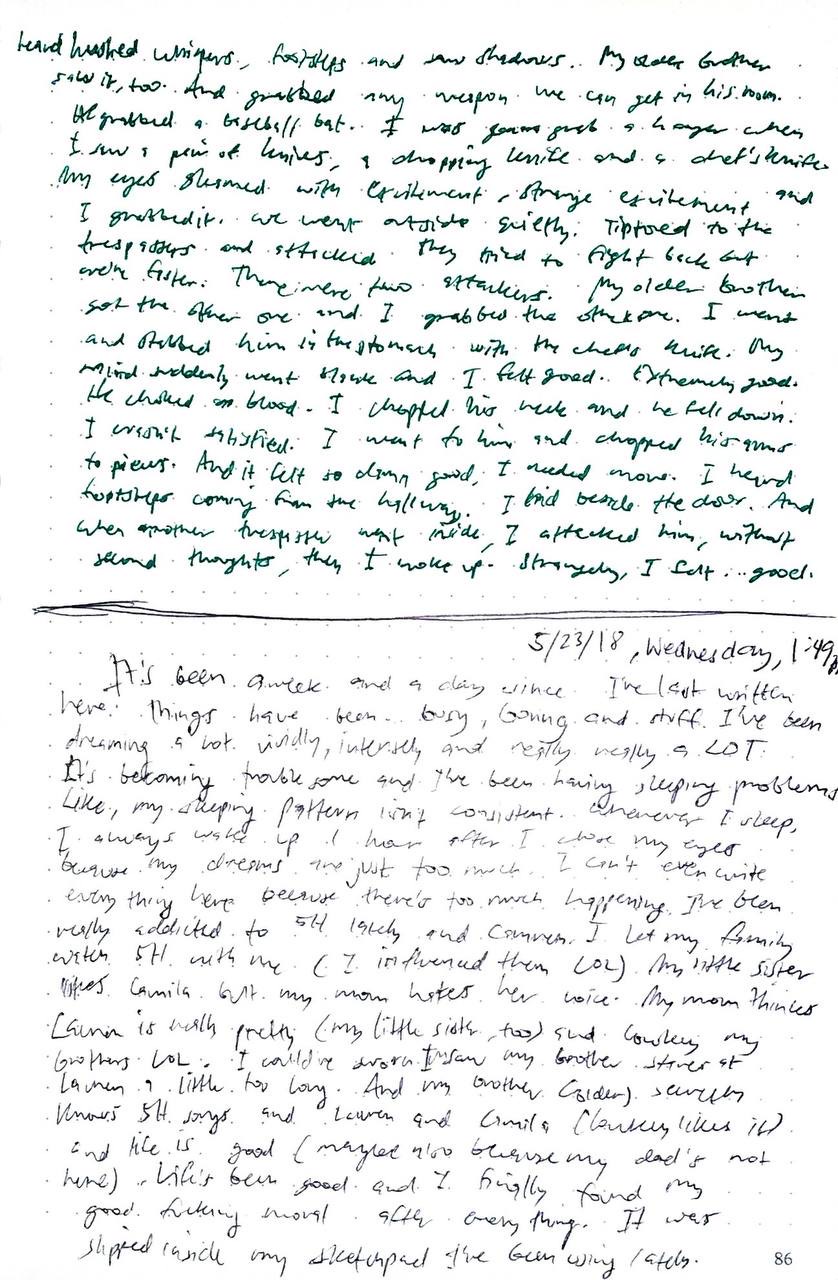 heard hushed whispers, footsteps and saw shadows. My older brother
saw it, too. And grabbed any weapon we can get in his room.
He grabbed a baseball bat. I was gonna grab a hanger when
I saw a pair of knives, a chopping knife and a chef's knife.
My eyes gleamed with excitement, strange excitement and
I grabbed it. We went outside quietly. Tiptoed to the
trespassers and attacked. They tried to fight back but
we're faster. There were two attackers. My older brother
got the other one and I grabbed the other one. I went
and stabbed him in the stomach with the chef's knife. My
mind suddenly went blank and I felt good. Extremely good.
He choked on blood. I chopped his neck and he fell down.
I wasn't satisfied. I went to him and chopped his arms
to pieces. And it felt so damn good, I needed more. I heard
footsteps coming from the hallway. I hid beside the door. And
when another trespasser went inside, I attacked him, without
second thoughts, then I woke up. Strangely, I felt... good.
5/23/18, Wednesday, 1:49
It's been a week and a day since I've last written
here. Things have been... busy, boring and stuff. I've been
dreaming a lot. vividly, intensely and really really a LOT.
It's becoming troublesome and I've been having sleeping problems
Like, my sleeping pattern isn't consistent. Whenever I sleep,
I always wake up 1 hour after I close my eyes
because my dreams are just too much. I can't even write
everything here because there's too much happening. I've been
really addicted to 5H lately and Camren. I let my family
watch 5H with me (I influenced them LOL) My little sister
likes Camila but my mom hates her voice. My mom thinks
Lauren is really pretty (my little sister, too) and lowkey my
brothers LOL. I could've sworn I saw my brother stares at
Lauren a little too long. And my brother (older) secretly
knows 5H songs and Lauren and Camila (lowkey likes it)
and life is good (maybe also because my dad's not
here). Life's been good and I finally found my
good fucking moral after everything. It was
slipped inside my sketchpad I've been using lately.
86